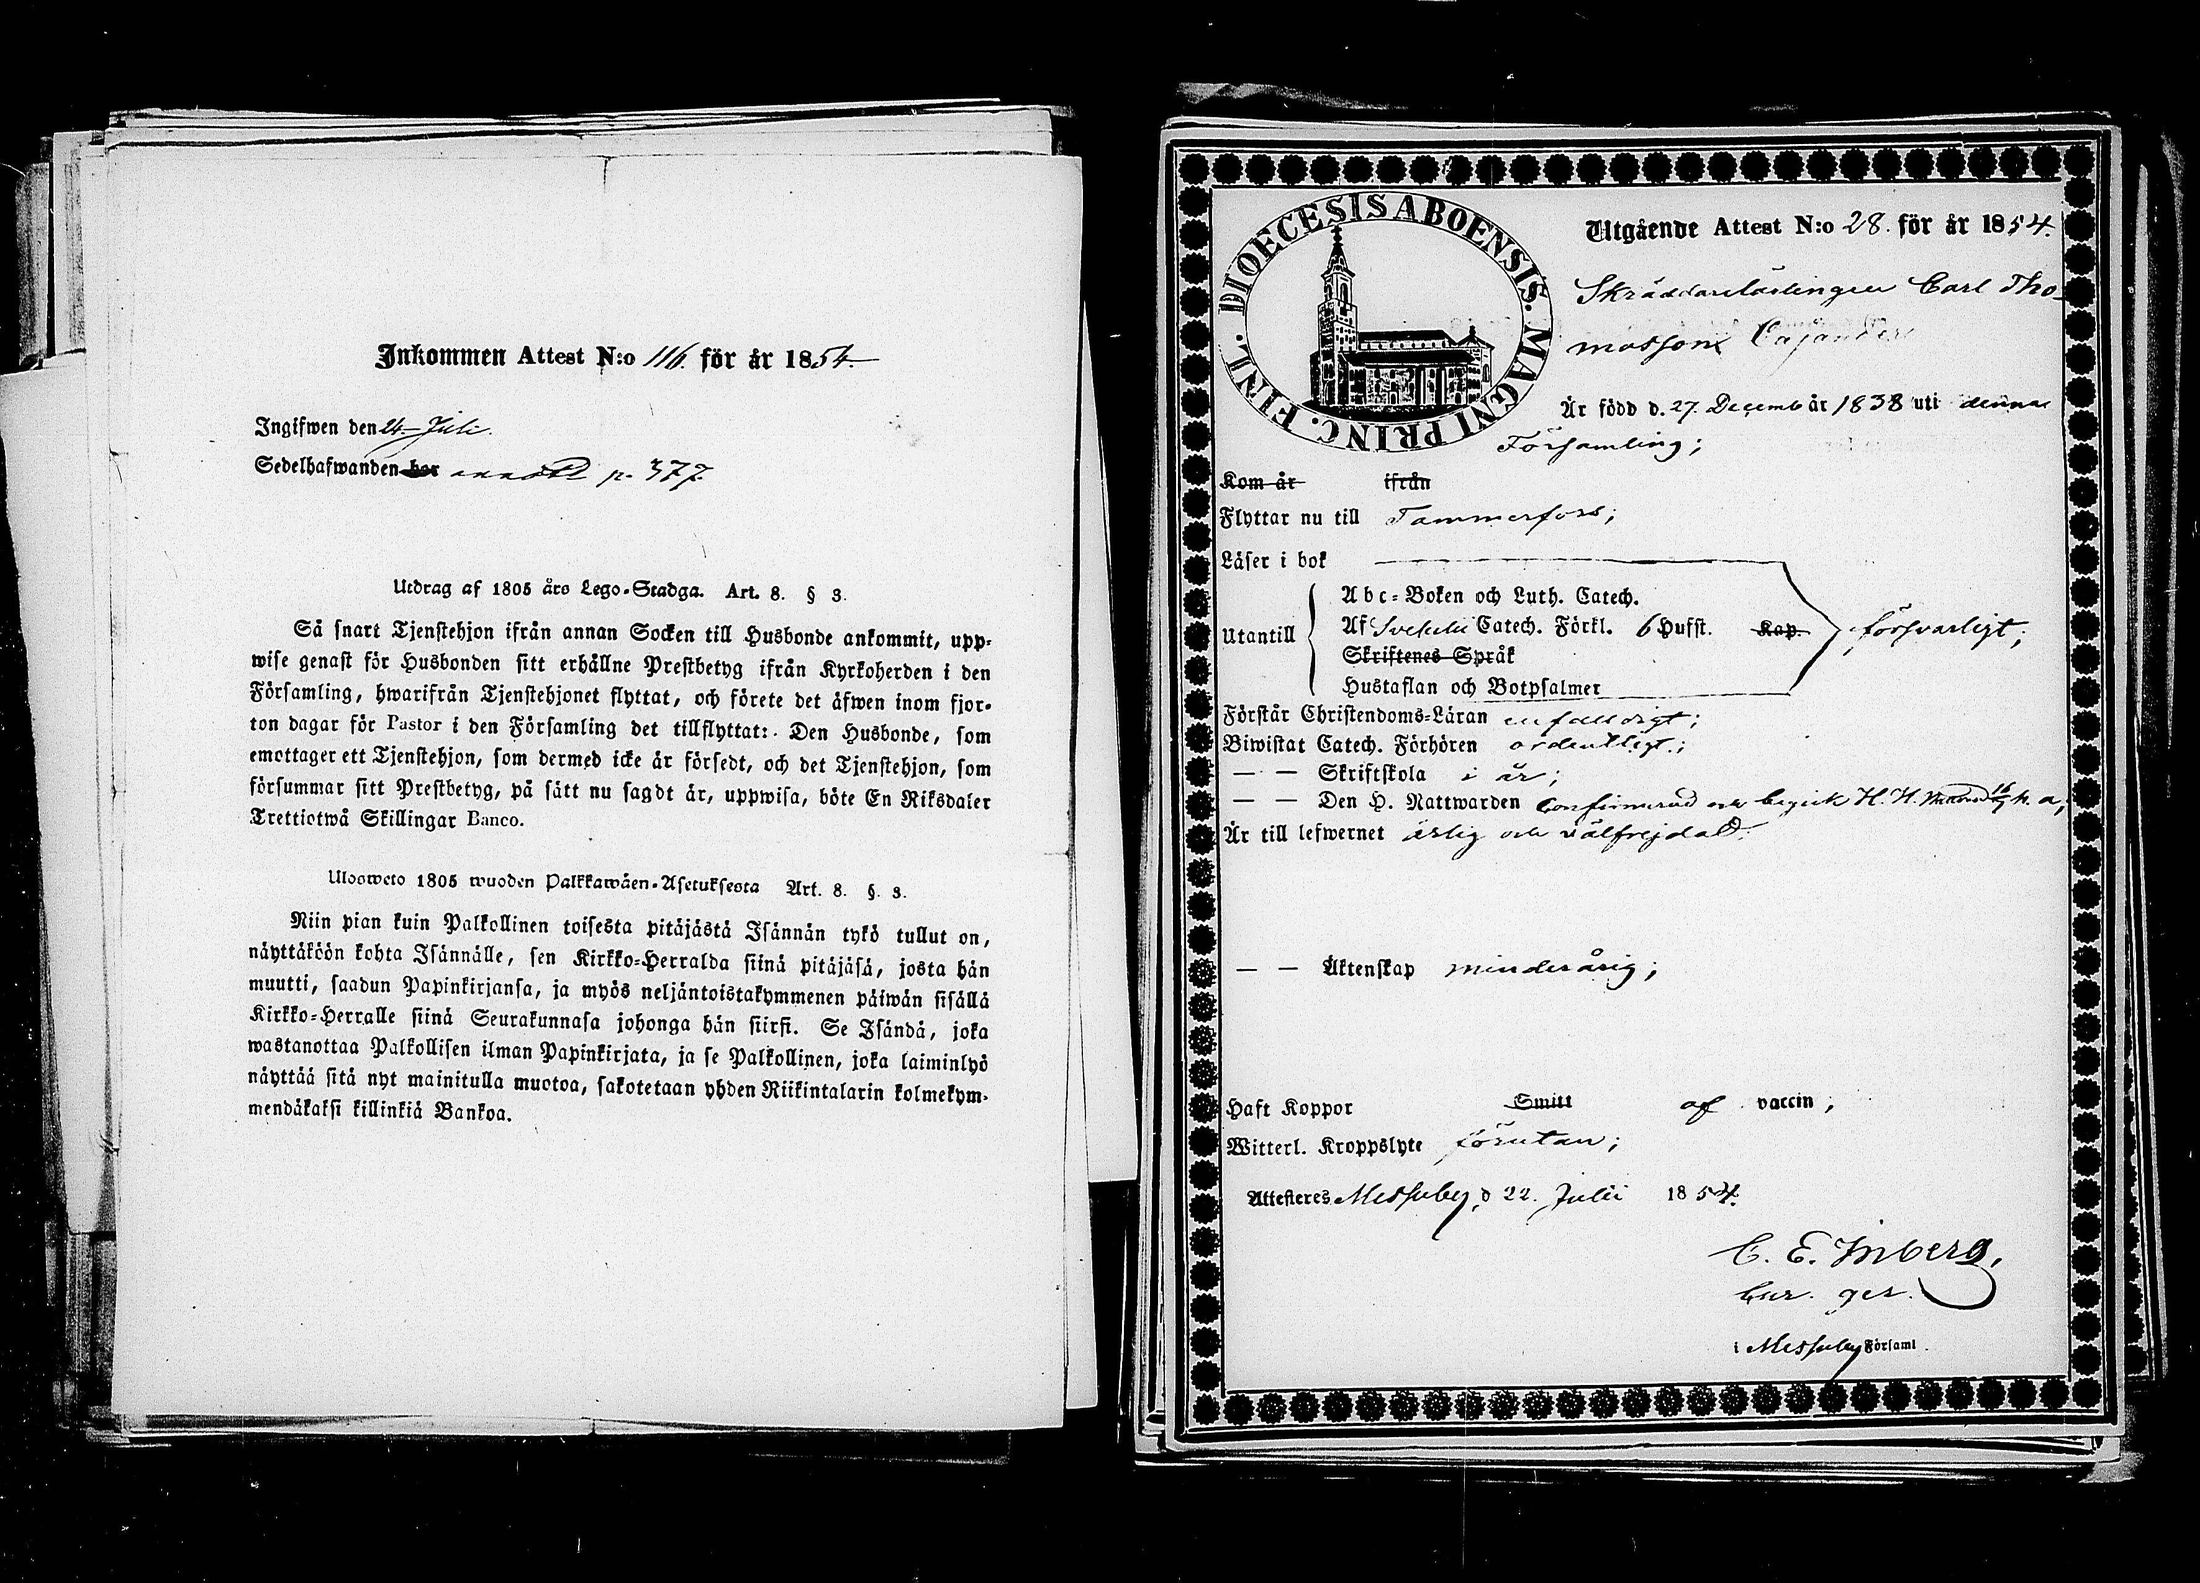 Inkommen Attest N:o 116. för år 1854.
Ingifwen den 24 Juli.
Sedelhafwanden har annotd p. 377.
Utdrag af 1805 års Lego-Stadga. Art. 8. § 3.
Så snart Tjenstehjon ifrån annan Socken till Husbonde ankommit, upp-
wise genast för Husbonden sitt erhållne Prestbetyg ifrån Kyrkoherden i den
Församling, hwarifrån Tjenstehjonet flyttat, och förete det äfwen inom fjor-
ton dagar för Pastor i den Församling det tillflyttat: Den Husbonde, som
emottager ett Tjenstehjon, som dermed icke är försedt, och det Tjenstehjon, som
försummar sitt Prestbetyg, på sätt nu sagdt är, uppwisa, böte En Riksdaler
Trettiotwå Skillingar Banco.
Ulosweto 1805 wuoden Palkkawäen-Asetuksesta Art. 8. §. 3.
Niin pian kuin Palkollinen toisesta pitäjästä Isännän tykö tullut on,
näyttäköön kohta Isännälle, sen Kirkko-Herralda siinä pitäjäsä, josta hän
muutti, saadun Papinkirjansa, ja myös neljäntoistakymmenen päiwän sisällä
Kirkko-Herralle siinä Seurakunnasa johonga hän siirsi. Se Isändä, joka
wastanottaa Palkollisen ilman Papinkirjata, ja se Palkollinen, joka laiminlyö
näyttää sitä nyt mainitulla muotoa, sakotetaan yhden Riikintalarin kolmekym-
mendäkaksi killinkiä Bankoa.
DIOECESIS ABOENSIS. MAGNI PRINC. FINL.
Utgående Attest N:o 28. för år 1854.
Skräddarelärlingen Carl Tho-
masson Cajander
Är född d. 27. Decemb år 1838 uti denna
Församling;
Kom år ifrån
Flyttar nu till Tammerfors;
Läser i bok
Utantill
Abc-Boken och Luth. Catech.
Af Svebelii Catech. Förkl. 6 Hufst. Kap.
försvarligt;
Skriftenes Språk
Hustaflan och Botpsalmer
Förstår Christendoms-Läran enfaldigt;
Biwistat Catech. Förhören ordentligt;
— — Skriftskola i år;
— — Den H. Nattwarden Confirmerad och begick H. H. h. a;
Är till lefwernet ärlig och välfrejdad.
— — Äktenskap minderårig;
Haft Koppor Smitt af vaccin;
Witterl. Kroppslyte förutan;
Attesteres Messuby, d 22. Julii 1854.
C. E. Inberg,
Cur. ger.
i Messuby Församl.